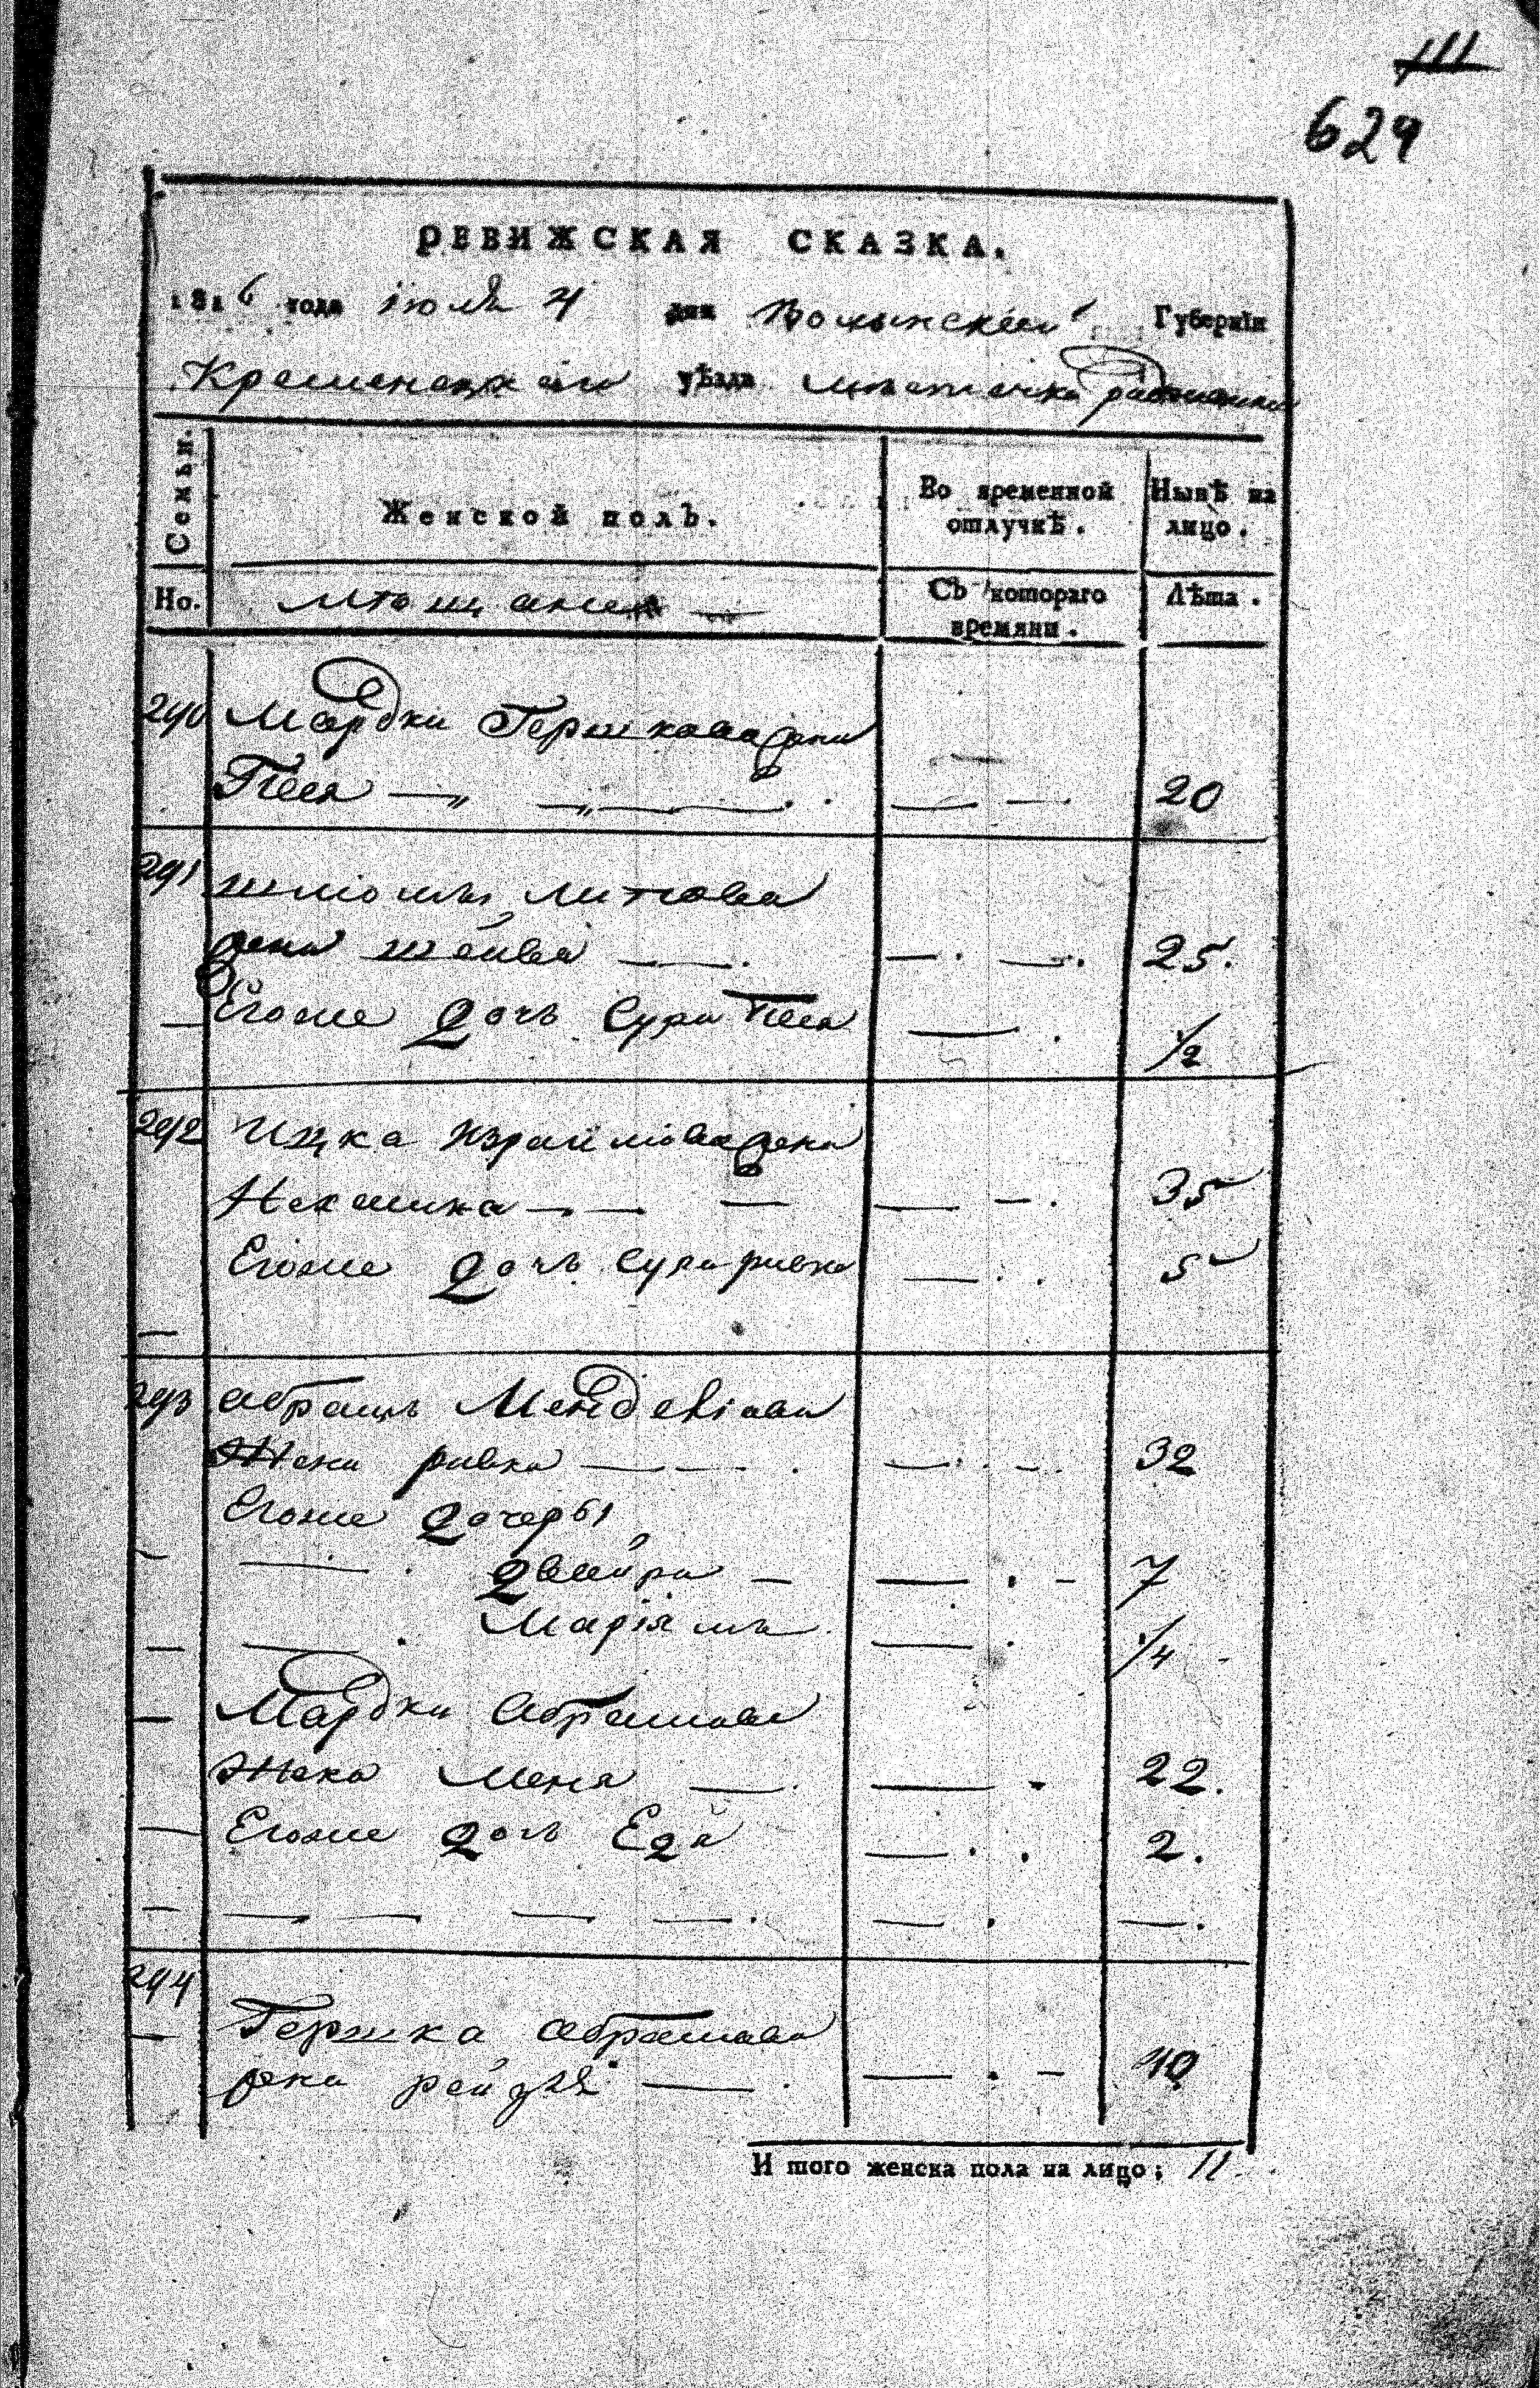 111
624
РЕВИЖСКАЯ СКАЗКА.
1816 года Июля 4 дня Волынской Губерніи
Кременецкаго уѣзда местечка
Семьи.
Женской полъ.
Во временной отлучкѣ.
Нынѣ на лицо.
Но.
Мѣщанѣ
Съ котораго времяни.
Лѣта.
290 Мардки Гершкова жена
Песя 20
291 Шліомы Литова
жена Шейва 25.
Егоже дочь Сура Песя 1/2
292 Ицка Израйліова жена
Нехамка 35
Егоже дочь Сура Ривка 5
293 Абрамъ Менделіова
Жена Ривка 32
Егоже дочеры
Двейра 7
Маріямъ 1/4
Мардки Абрамова
Жена Меня 22.
Егоже дочь Едя 2.
294
Гершка Абрамова
жена Рейзя 40
И того женска пола на лицо; 11.